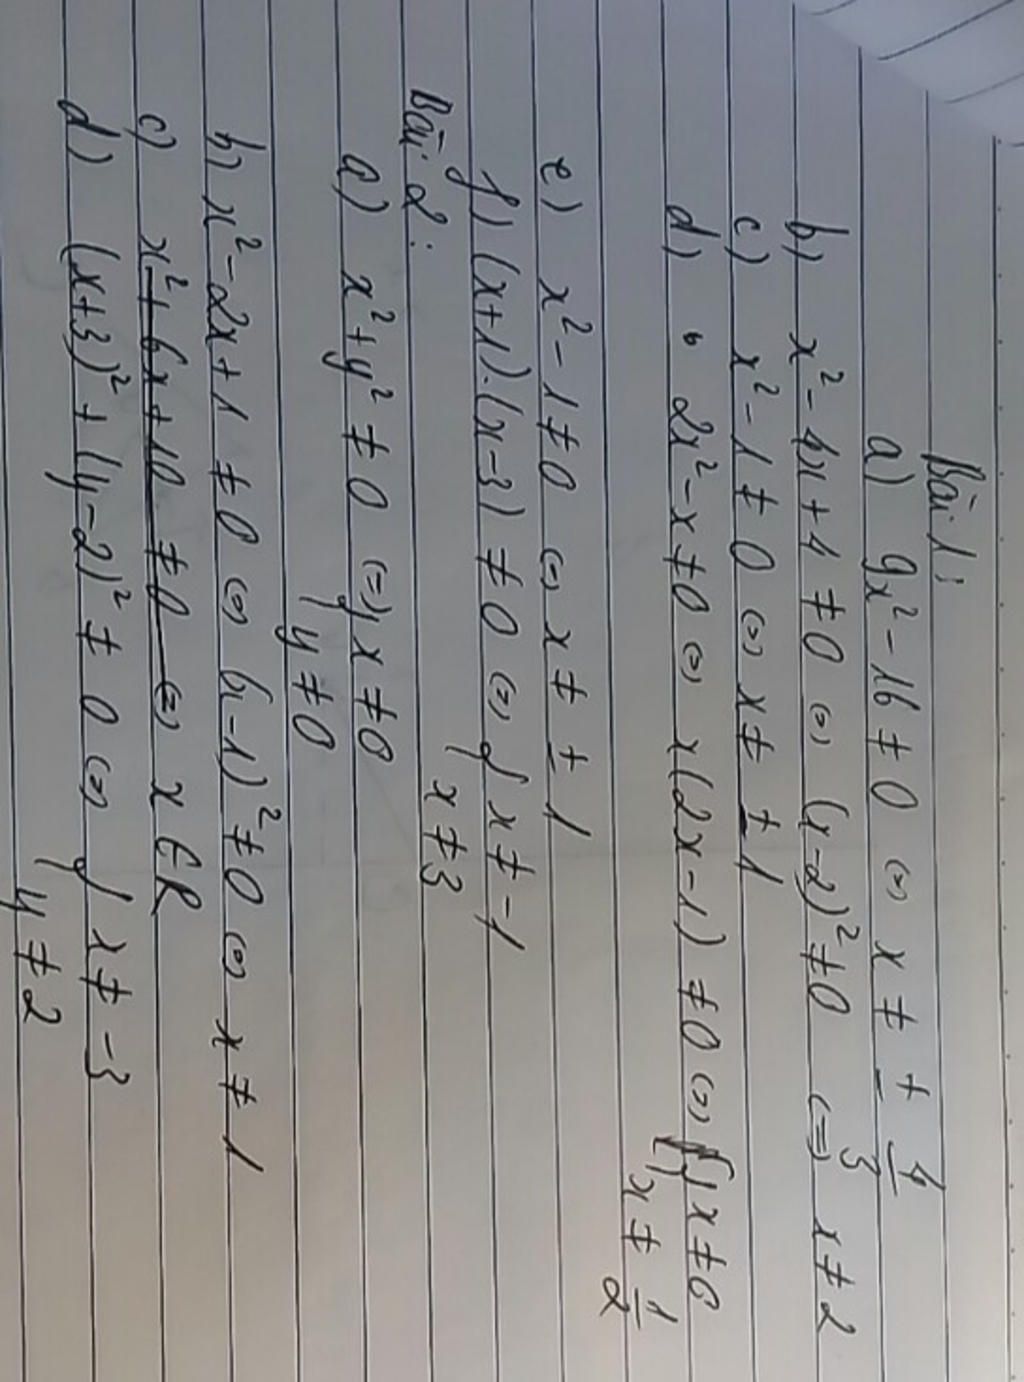 Bài 1:
a) 9x² - 16 ≠ 0 ⇔ x ≠ ± 4/3
b) x² - 4x + 4 ≠ 0 ⇔ (x-2)² ≠ 0 ⇔ x ≠ 2
c) x² - 1 ≠ 0 ⇔ x ≠ ± 1
d) 2x² - x ≠ 0 ⇔ x(2x-1) ≠ 0 ⇔ { x ≠ 0
x ≠ 1/2
e) x² - 1 ≠ 0 ⇔ x ≠ ± 1
f) (x+1).(x-3) ≠ 0 ⇔ { x ≠ -1
x ≠ 3
Bài 2:
a) x² + y² ≠ 0 ⇔ { x ≠ 0
y ≠ 0
b) x² - 2x + 1 ≠ 0 ⇔ (x-1)² ≠ 0 ⇔ x ≠ 1
c) x² + 6x + 10 ≠ 0 ⇔ x ∈ R
d) (x+3)² + (y-2)² ≠ 0 ⇔ { x ≠ -3
y ≠ 2